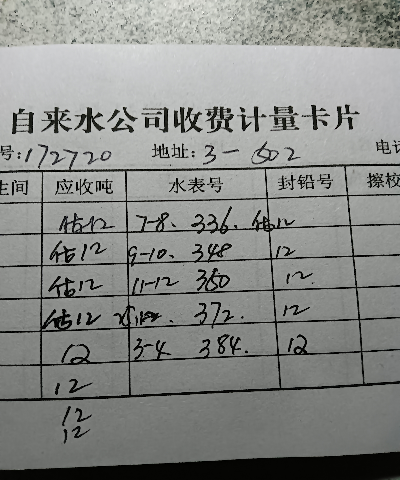 自来水公司收费计量卡片
号:172720 地址:3-602 电话
生间 应收吨 水表号 封铅号 擦校
估12 7-8. 336. 估12
估12 9-10. 348 12
估12 11-12 360 12.
估12 372. 12
12 3-4 384. 12
12
12
12